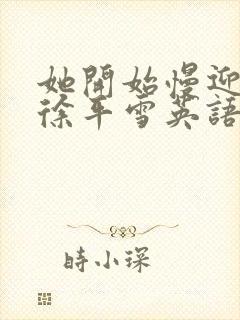 她開始慢迎
徐平雪英語
時小琛